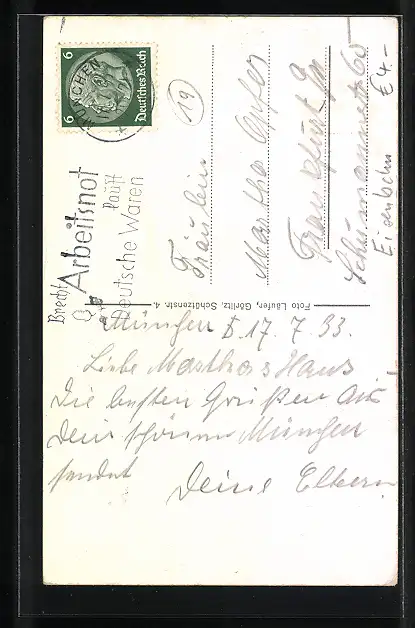 6 6
Deutsches Reich
MÜNCHEN
Brecht
Arbeitsnot
kauft
Deutsche Waren
19
Fräulein
Martha Opfer
Frankfurt a/M
Schumannstr 65
Eisenbahn €4.-
Foto Läufer, Görlitz, Schützenstr. 4.
München d. 17. 7. 33.
Liebe Martha & Hans
Die besten Grüßen aus
dem schönen München
sendet Deine Eltern